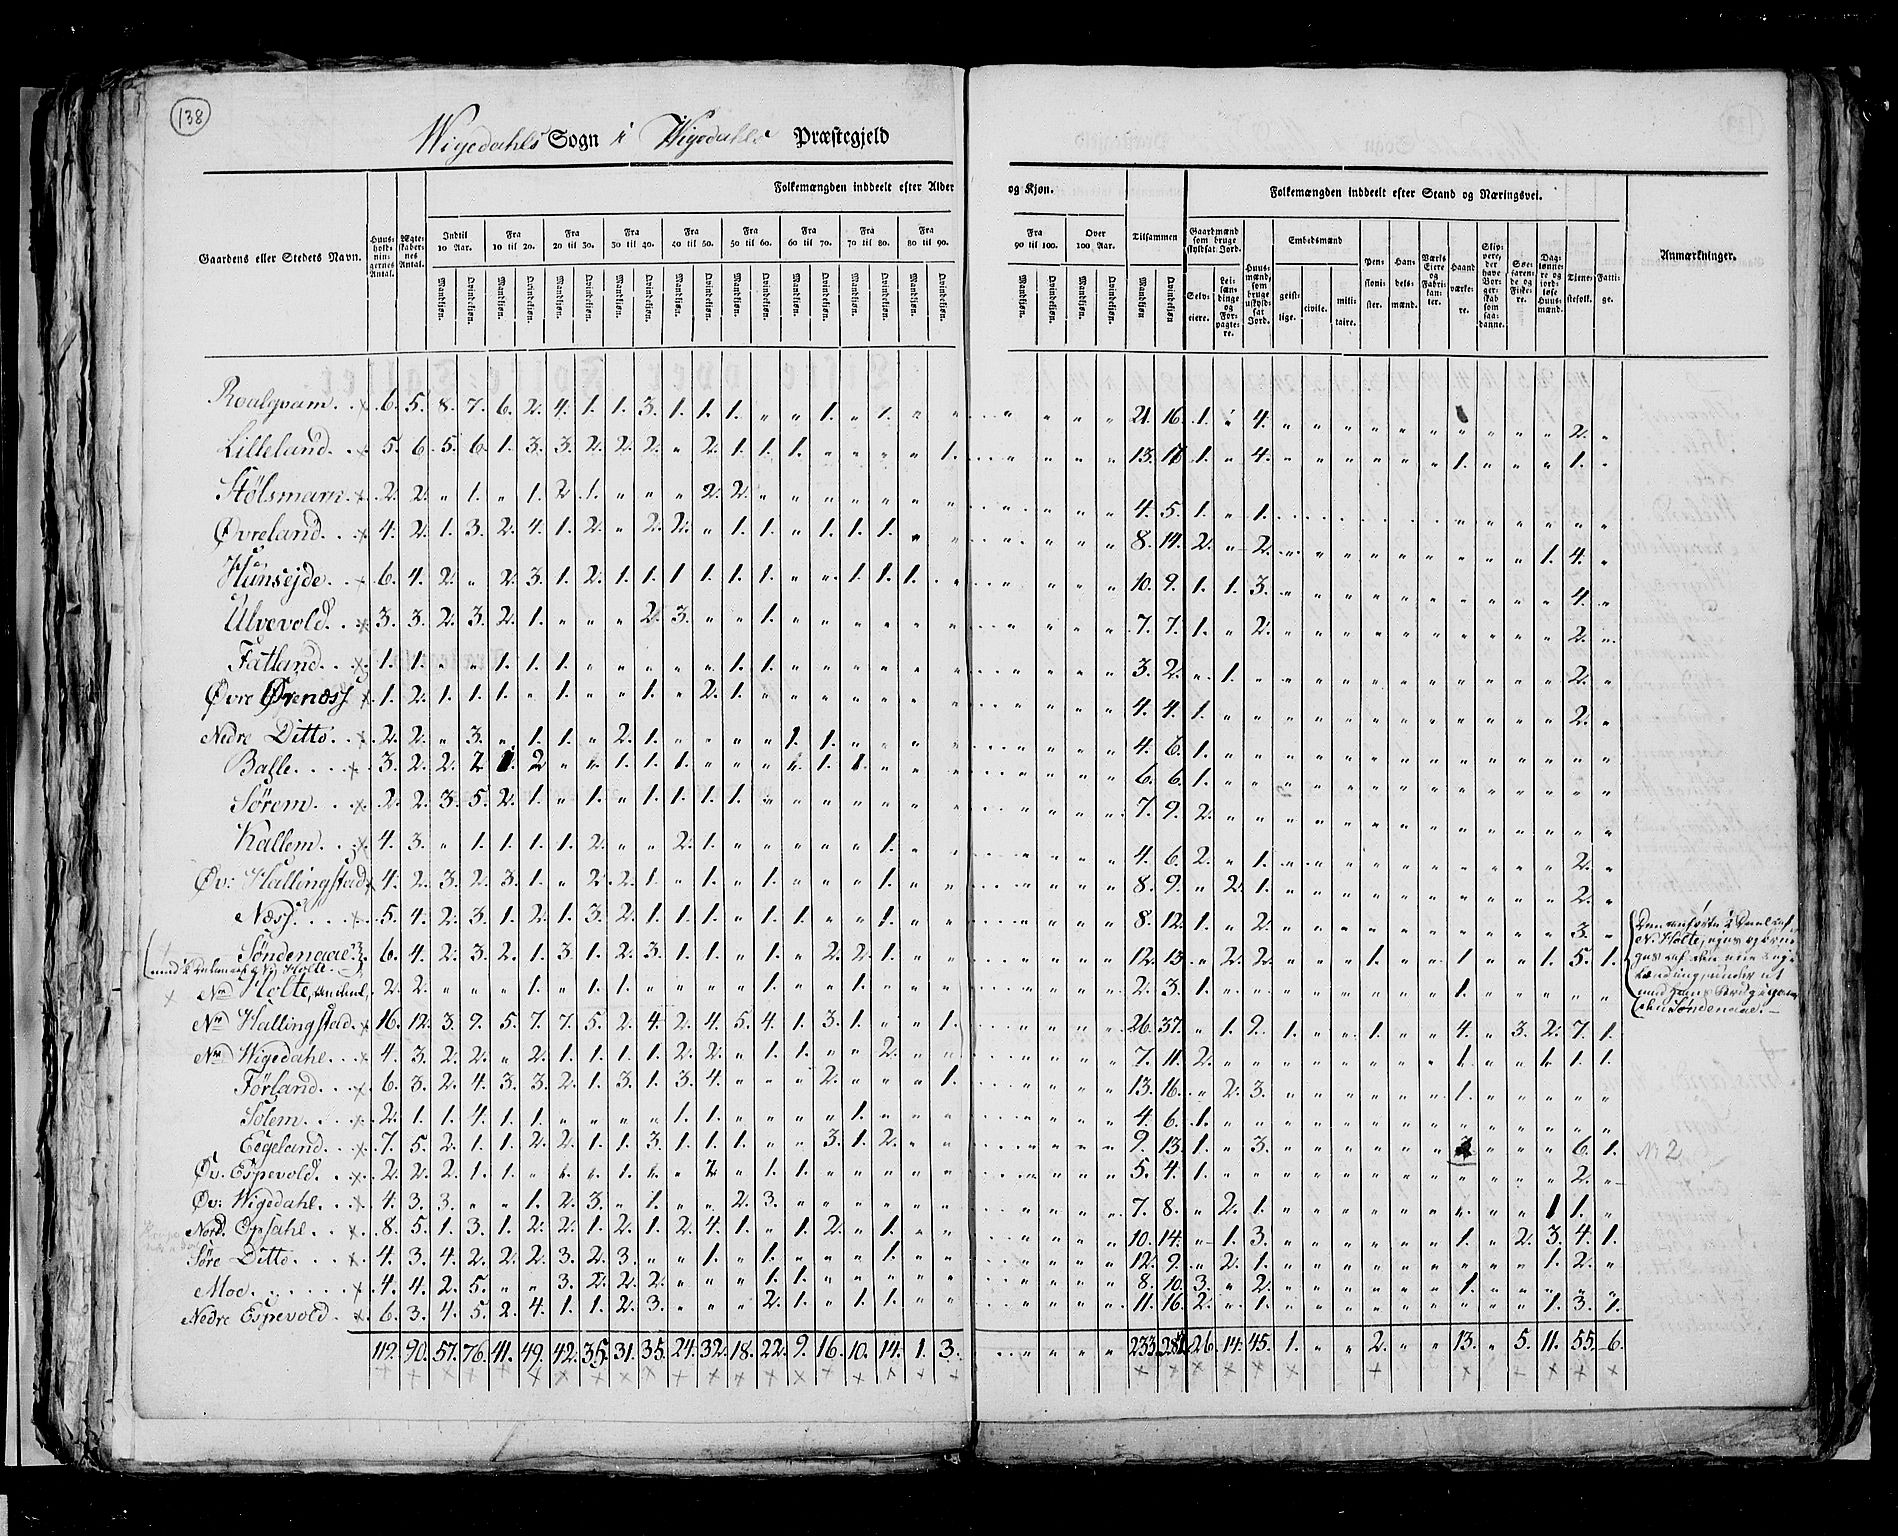 138
Wigedahls Sogn i Wigedahls Præstegjeld
Folkemængden inddeelt efter Alder og Kjøn.
Folkemængden inddeelt efter Stand og Næringsvei.
Gaardens eller Stedets Navn.
Huus-holdnin-gernes Antal.
Ægte-skaber-nes Antal.
Indtil 10 Aar.
Fra 10 til 20.
Fra 20 til 30.
Fra 30 til 40.
Fra 40 til 50.
Fra 50 til 60.
Fra 60 til 70.
Fra 70 til 80.
Fra 80 til 90.
Fra 90 til 100.
Over 100 Aar.
Tilsammen
Mandkjøn. Qvindekjøn.
Gaardmænd som bruge skyldsat Jord.
Selv-eiere.
Lei-lændinge og For-pagte-re.
Huus-mænd, som bruge uskyld-sat Jord.
Embedsmænd
geist-lige.
civile.
mili-taire.
Pen-sioni-ster.
Han-dels-mænd.
Værks Eiere og Fabri-kan-ter.
Haand-værke-re.
Skip-pere, der have Bor-ger-skab som saa-danne.
Søe-faren-de og Fiske-re.
Dag-lønne-re og jord-løse Huus-mænd.
Tjene-stefolk.
Fatti-ge.
Anmærkninger.
Roalqvam . . 6. 5. 8. 7. 6. 2. 4. 1. 1. 3. 1. 1. 1. „ „ 1. „ 1. „ „ „ „ „ „ 21. 16. 1. „ 4. „ „ „ „ „ „ „ „ „ „ 2. „
Lilleland . . 5. 6. 5. 6. 1. 3. 3. 2. 2. 2. „ 2. 1. 1. 1. „ „ „ „ 1. „ „ „ „ 13. 17. 1. „ 4. „ „ „ „ „ „ 1. „ „ „ 1. „
Stølsmarn . . 2. 2. „ 1. „ 1. 2. 1. „ „ „ 2. 2. „ „ „ „ „ „ „ „ „ „ „ 4. 5. 1. „ 1. „ „ „ „ „ „ „ „ „ „ „ „
Øvreland . . 4. 2. 1. 3. 2. 4. 1. 2. „ 2. 2. „ 1. 1. „ 1. 1. 1. „ „ „ „ „ „ 8. 14. 2. „ 2. „ „ „ „ „ „ „ „ „ 1. 4. „
Hunsejde . . 6. 4. 2. „ 2. 3. 1. 2. 1. 1. 1. 1. 1. 1. „ „ 1. 1. 1. „ „ „ „ „ 10. 9. 1. 1. 3. „ „ „ „ „ „ „ „ „ „ 4. „
Ulvevold . . 3. 3. 2. 3. 2. 1. „ „ „ 2. 3. „ „ 1. „ „ „ „ „ „ „ „ „ „ 7. 7. 1. „ 2. „ „ „ „ „ „ „ „ „ „ 2. „
Fatland . . 1. 1. „ „ 1. 1. 1. „ „ „ „ „ 1. 1. „ „ „ „ „ „ „ „ „ „ 3. 2. „ 1. „ „ „ „ „ „ „ „ „ „ „ 2. „
Øvre Ørenæss 1. 2. 1. 1. 1. „ 1. „ „ 1. „ 2. 1. „ „ „ „ „ „ „ „ „ „ „ 4. 4. 1. „ „ „ „ „ „ „ „ „ „ „ „ 2. „
Nedre Ditto . . 2. 2. „ 3. „ 1. 1. „ 2. 1. „ „ „ „ 1. 1. „ „ „ „ „ „ „ „ 4. 6. 1. „ „ „ „ „ „ „ „ „ „ „ „ „ „
Balle . . . 3. 2. 2. 2 1. 2 „ „ 1. 1. 1. „ „ „ „ 1. 1. „ „ „ „ „ „ „ 6. 6. 1. „ „ „ „ „ „ „ „ „ „ „ „ „ „
Sørem . . 2. 2. 3. 5. 2. 1. „ 1. „ 1. 1. 1. 1. „ „ „ „ „ „ „ „ „ „ „ 7. 9. 2. „ „ „ „ „ „ „ „ „ „ „ „ „ „
Kallem . . 4. 3. „ 1. 1. 1. 1. 2. „ „ 2. 1. „ „ „ „ „ 1. „ „ „ „ „ „ 4. 6. 2. „ 1. „ „ „ „ „ „ „ „ „ „ 2. „
Øv: Hallingstad 4. 2. 3. 2. 3. 1. „ 2. 2. 1. „ 1. „ 1. „ „ „ 1. „ „ „ „ „ „ 8. 9. „ 2. 1. „ „ „ „ „ „ „ „ „ „ 2. „
Næss . . . 5. 4. 2. 3. 1. 2. 1. 3. 2. 1. 1. 1. „ 1. 1. „ „ 1. „ „ „ „ „ „ 8. 12. 1. „ 2. „ „ „ „ „ „ „ „ „ „ 3. „
Søndenaae 6. 4. 2. 3. 2. 1. 3. 1. 2. 3. 1. 1. „ 1. „ 2. 2. 1. „ „ „ „ „ „ 12. 13. „ 2. 2. „ „ „ 1. „ „ 1. „ „ 1. 5. 1.
Nre Holte, 2. 2. „ „ „ 1. „ 1. 1. „ „ „ „ 1. „ „ 1. „ „ „ „ „ „ „ 2. 3. 1. „ „ „ „ „ „ „ „ 1. „ „ „ „ „
Nre Hallingstad 16. 12. 3. 9. 5. 7. 7. 5. 2. 4. 2. 4. 5. 4. 1. 3. 1. „ „ 1. „ „ „ „ 26. 37. „ 1. 2. 1. „ „ 1. „ „ 4. „ 3. 2. 7. 1.
Nre Wigedahl . . 4. 3. 2. 2. „ 2. 1. 1. 1. 1. 2. 2. „ 1. 1. „ „ 2. „ „ „ „ „ „ 7. 11. 2. „ „ „ „ „ „ „ „ 1. „ „ 1. 1. 1.
Førland . . 6. 3. 2. 4. 3. 3. 2. 1. 3. 1. 3. 4. „ „ „ 2. „ „ „ 1. „ „ „ „ 13. 16. „ 2. 3. „ „ „ „ „ „ 1. „ „ „ „ „
Solem . . . 2. 1. 1. 4. 1. 1. „ „ „ „ 1. 1. „ „ „ „ 1. „ „ „ „ „ „ „ 4. 6. 1. „ „ „ „ „ „ „ „ „ „ „ „ „ „
Eegeland . . 7. 5. 2. 1. 1. 2. 2. 1. 1. 3. 1. 1. 1. „ „ 3. 1. 2. „ „ „ „ „ „ 9. 13. 1. „ 3. „ „ „ „ „ „ „ „ „ 6. 1. N 2
Øv. Espevold . . 2. 2. 2. 1. 1. „ „ „ 1. „ „ 2. „ 1. 1. „ „ „ „ „ „ „ „ „ 5. 4. 1. „ „ „ „ „ „ „ „ „ „ „ „ 2. „
Øv: Wigedahl . . 4. 3. 3. „ „ 1. 2. 3. „ 1. „ „ 2. 3. „ „ „ „ „ „ „ „ „ „ 7. 8. „ 2. 1. „ „ „ „ „ „ „ „ „ 1 1. „
Nord. Opsahl . . 8. 5. 1. 3. 1. 2. 2. 1. 2. 1. 2. 4. 1. „ 1. 2. „ 1. „ „ „ „ „ „ 10. 14. „ 1. 3. „ „ „ „ „ „ 1. „ 2. 3. 4. 1.
Søre Ditto . . 4. 3. 4. 2. 2. 2. 3. 2. 3. „ „ 1. „ 1. „ „ „ 1. „ „ „ „ „ „ 12. 9. „ 2. 1. „ „ „ „ „ „ „ „ „ 1. 2. „
Moe . . . . 4. 4. 2. 5. „ „ 3. 2. 2. 2. „ „ „ 1. 1. „ „ „ „ „ „ „ „ „ 8. 10. 3. „ 2. „ „ „ „ „ „ 1. „ „ „ „ „
Nedre Espevold . . 6. 3. 4. 5. 2. 4. 1. 1. 2. 3. „ „ „ 2. 1. „ 1. 1. „ „ „ „ „ „ 11. 16. 2. „ 1. „ „ „ „ „ „ „ „ „ 1. 3. 1.
119. 90. 57. 76. 41. 49. 42. 35. 31. 35. 24. 32. 18. 22. 9. 16. 10. 14. 1. 3. „ „ „ „ 233. 282. 26. 14. 45. 1. „ „ 2. „ „ 13. „ 5. 11. 55. 6.